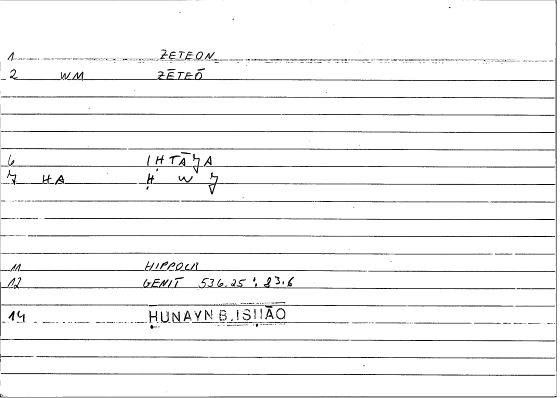 1 ZETEON
2 WM ZĒTEŌ
6 IḤTĀǦA
7 HA Ḥ W Ǧ
11 HIPPOCR
12 GENIT 536.25 : 83.6
14 ḤUNAYN B.ISḤĀQ